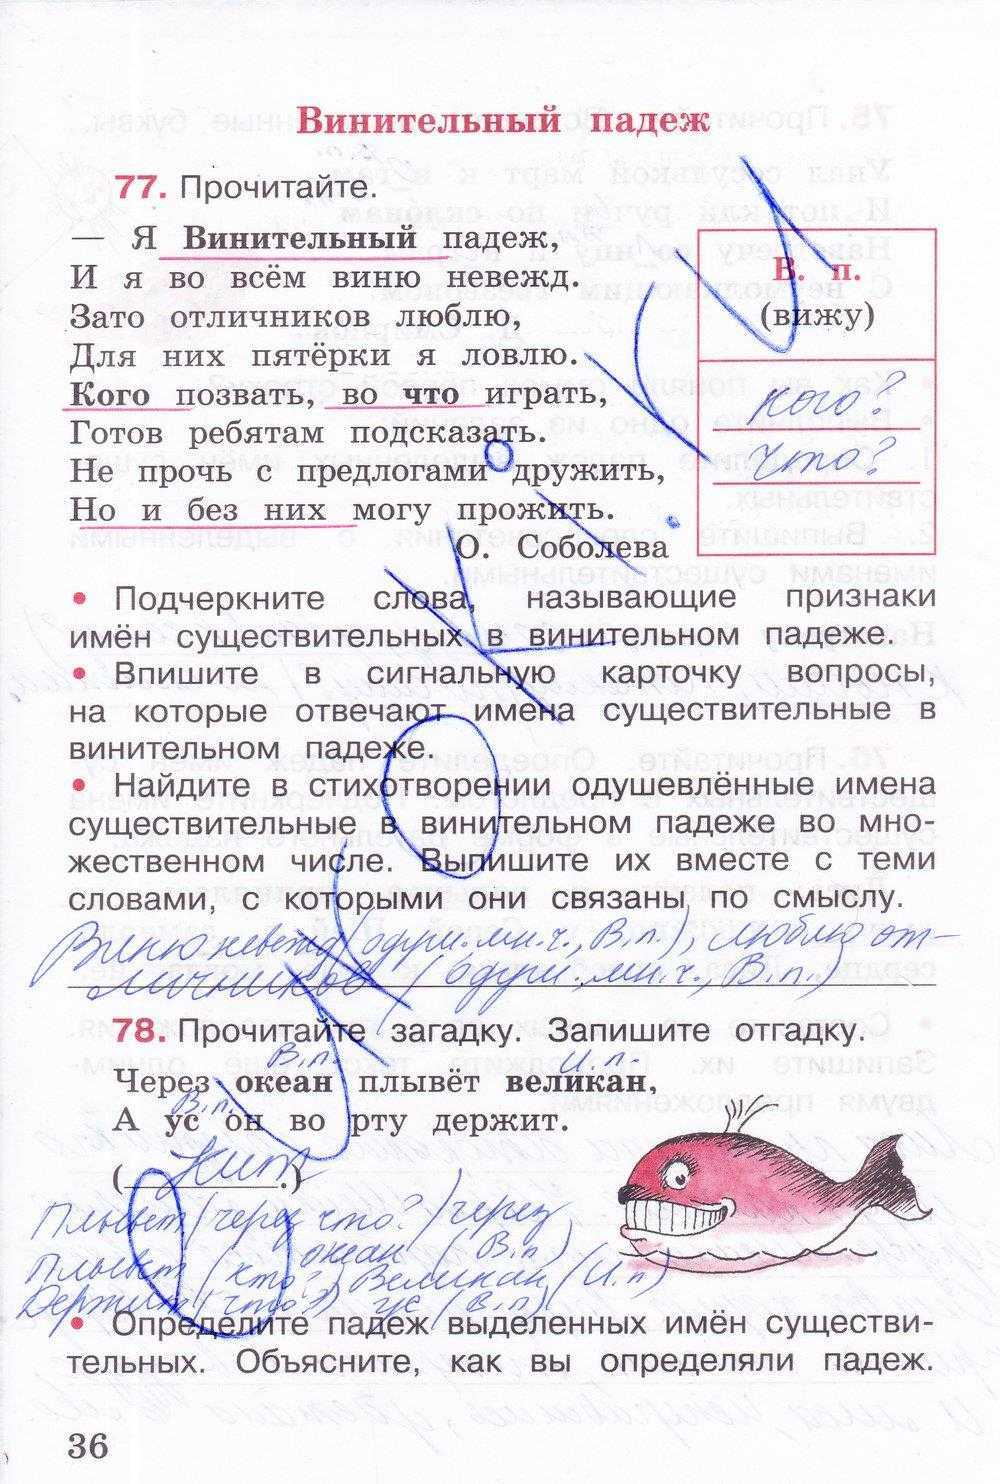 Винительный падеж
77. Прочитайте.
— Я Винительный падеж,
И я во всём виню невежд.
Зато отличников люблю,
Для них пятёрки я ловлю.
Кого позвать, во что играть,
Готов ребятам подсказать.
Не прочь с предлогами дружить,
Но и без них могу прожить.
О. Соболева
В. п.
(вижу)
кого?
что?
• Подчеркните слова, называющие признаки
имён существительных в винительном падеже.
• Впишите в сигнальную карточку вопросы,
на которые отвечают имена существительные в
винительном падеже.
• Найдите в стихотворении одушевлённые имена
существительные в винительном падеже во мно-
жественном числе. Выпишите их вместе с теми
словами, с которыми они связаны по смыслу.
Виню невежд (одуш. мн.ч., В.п.), люблю от-
личников (одуш., мн.ч., В.п.)
78. Прочитайте загадку. Запишите отгадку.
В.п. И.п.
Через океан плывёт великан,
В.п.
А ус он во рту держит.
(Кит.)
Плывёт (через что?) через
океан (В.п)
Плывёт (кто?) Великан (И.п)
Держит (что?) ус (В.п)
• Определите падеж выделенных имён существи-
тельных. Объясните, как вы определяли падеж.
36